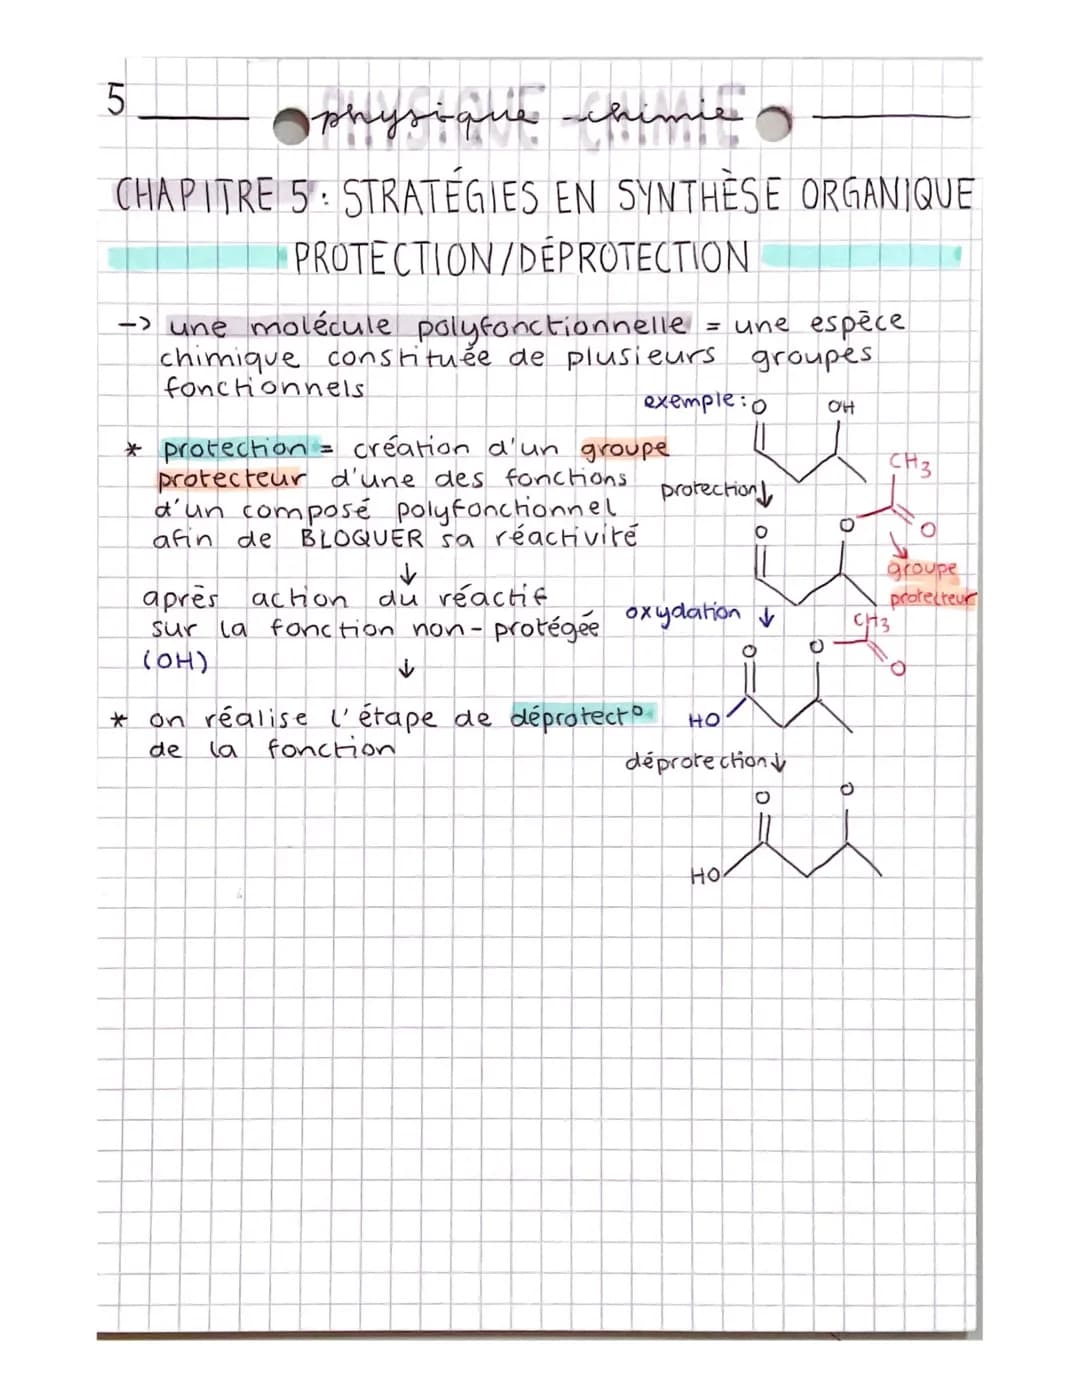 5
PHYSIQUE CHIMIE
physique chimie
CHAPITRE 5 : STRATÉGIES EN SYNTHÈSE ORGANIQUE
PROTECTION/DÉPROTECTION
-> une molécule polyfonctionnelle = une espèce
chimique constituée de plusieurs groupes
fonctionnels
exemple :
O OH
* protection = création d'un groupe
protecteur d'une des fonctions
d'un composé polyfonctionnel
afin de BLOQUER sa réactivité
protection ↓
CH3
O O O
groupe
protecteur
↓
après action du réactif
sur la fonction non-protégée
(OH)
↓
oxydation ↓
CH3
O O O
HO
* on réalise l'étape de déprotect°
de la fonction
déprotection ↓
O O
HO